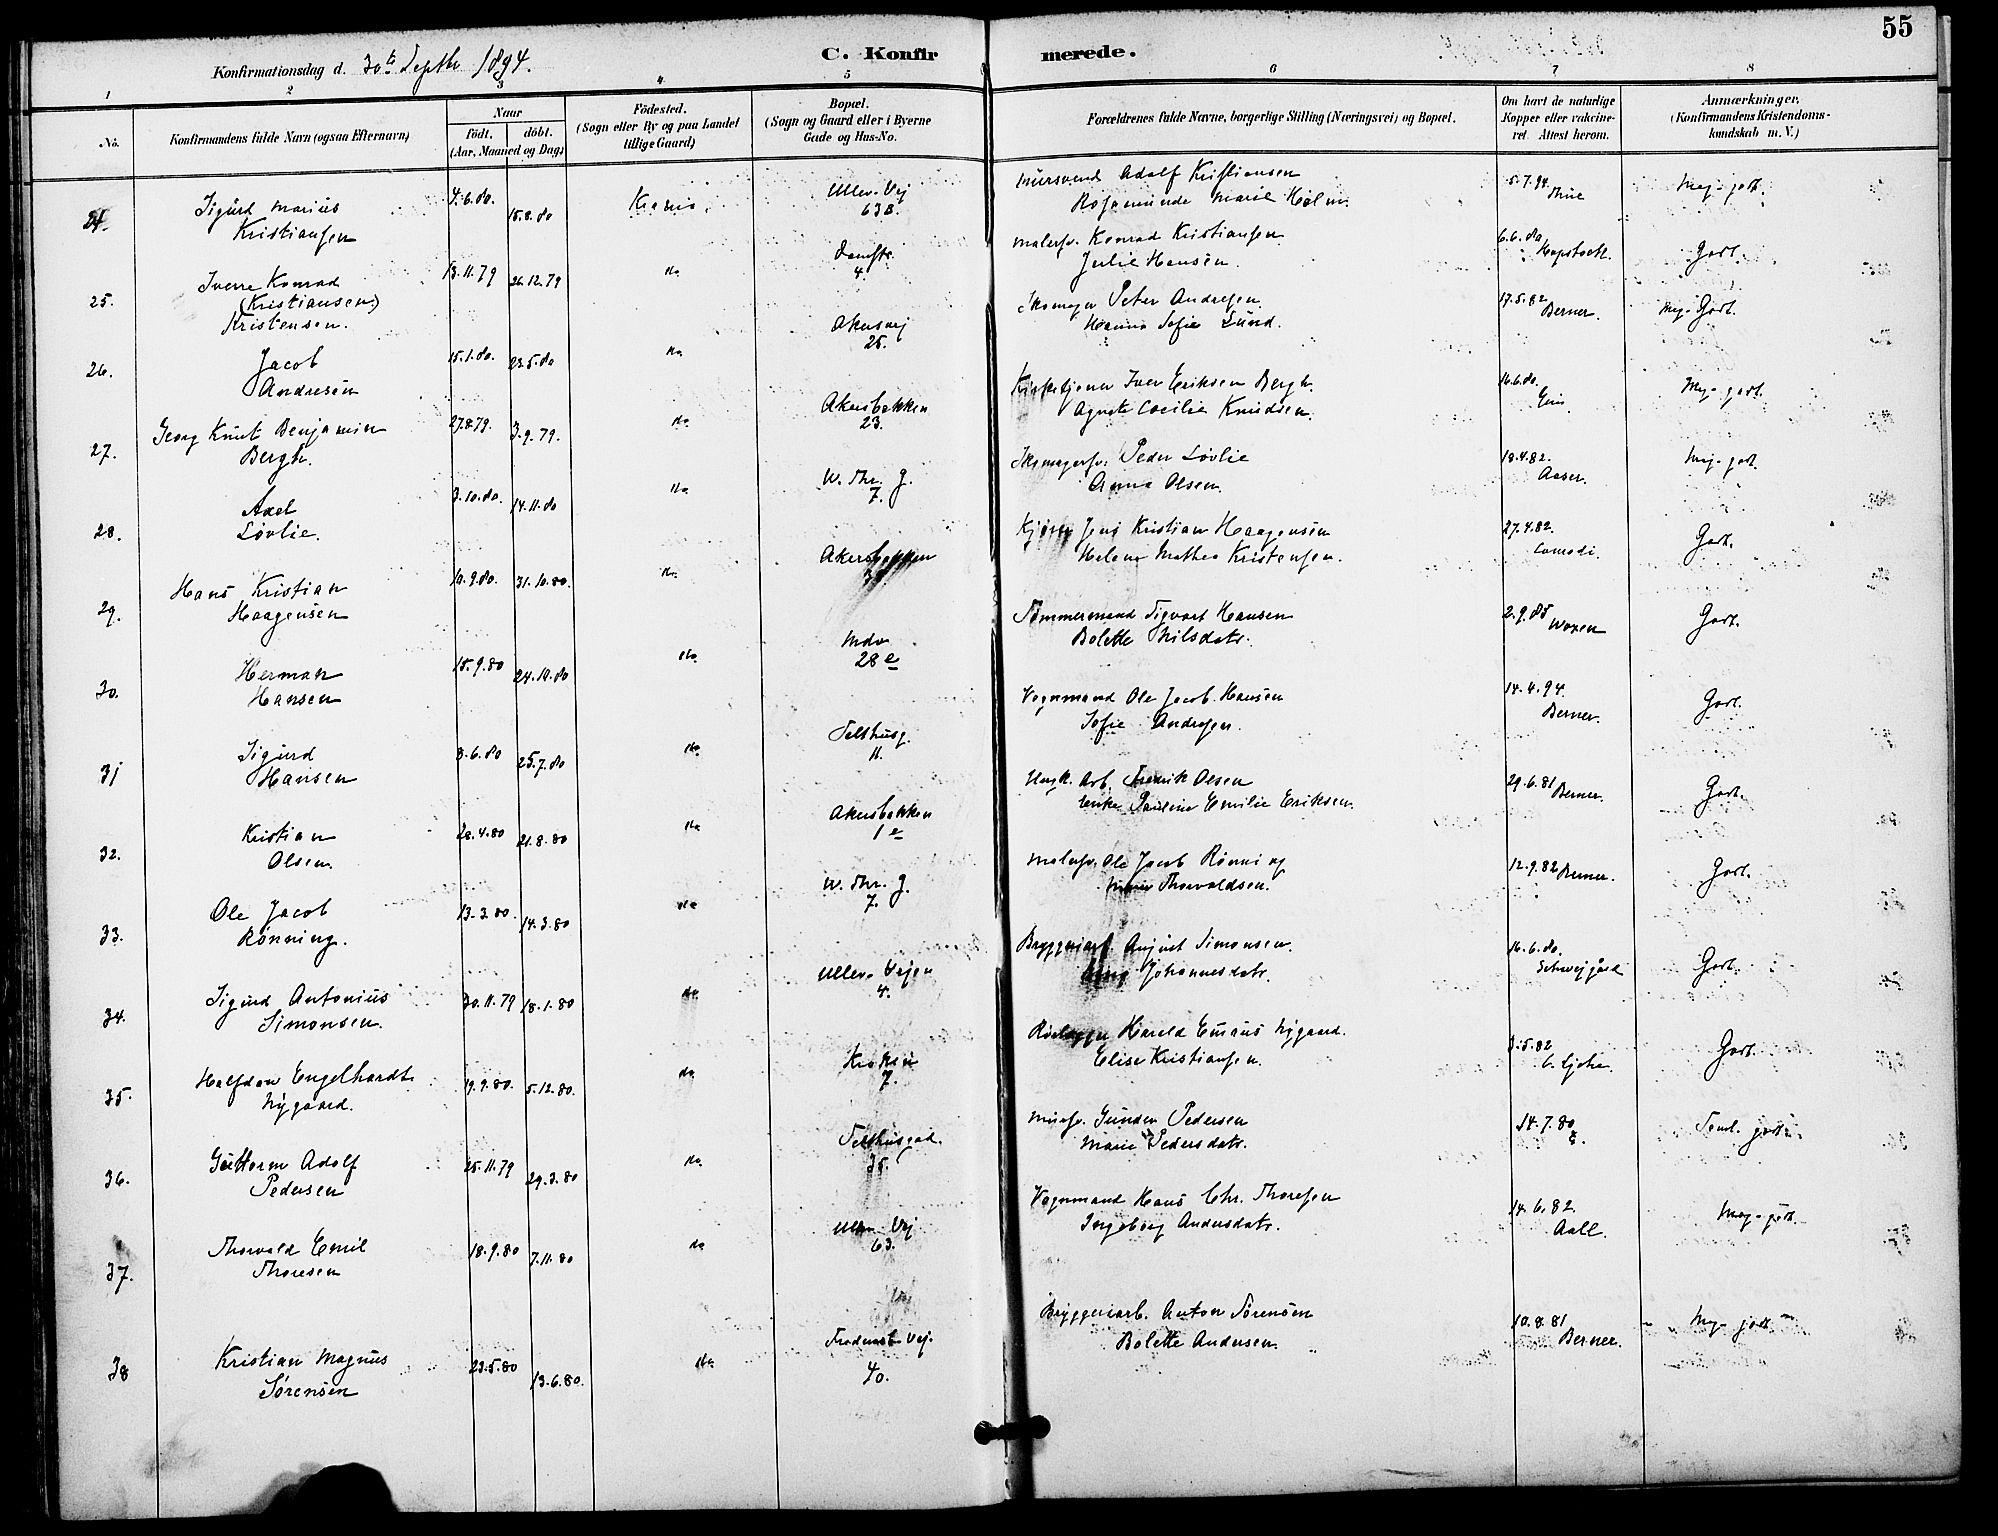 55
Konfirmationsdag d. 30te Septbr 1894.
C. Konfir merede.
1 2 3 4 5 6 7 8
No.
Konfirmandens fulde Navn (ogsaa Efternavn)
Naar
födt. döbt.
(Aar, Maaned og Dag)
Födested.
(Sogn eller By og paa Landet
tillige Gaard)
Bopæl.
(Sogn og Gaard eller i Byerne
Gade og Hus-No.
Forældrenes fulde Navne, borgerlige Stilling (Næringsvei) og Bopæl.
Om havt de naturlige
Kopper eller vakcine-
ret. Attest herom.
Anmærkninger,
(Konfirmandens Kristendoms-
kundskab m. V.)
24. Sigurd Marius 4.6.80. 15.8.80 Kra­nia Ullev. Vej Mursvend Adolf Kristiansen 5.7.94 Meg. godt.
Kristiansen 63 B. Rosamunde Marie Holm.
25. Sverre Konrad 13.11.79 26.12.79 do. Damstr. Malersv. Konrad Kristiansen 6.6.80 Godt.
(Kristiansen) 4. Julie Hansen.
Kristensen.
26. Jacob 15.1.80. 23.5.80 do. Akersvej Skomager Peter Andresen 17.5.82 Berner. Meg. Godt.
Andresen 25. Hanna Sofie Lund.
27. Georg Knut Benjamin 27.8.79. 3.9.79. do. Akersbakken Kirketjener Iver Eriksen Bergh. 16.6.80. Meg. godt.
Bergh. 23. Agnete Cecilie Knudsen.
28. Axel 3.10.80. 14.11.80 do. W. Thr. G. Skomagersv. Peder Løvlie 18.4.82. Meg. godt.
Løvlie. 7. Anna Olsen. Aaser.
29. Hans Kristian 10.9.80. 31.10.80. do. Akersbakken Jens Kristian Haagensen 27.4.82. Godt.
Haagensen Helene Mathea Kristensen.
30. Herman 15.9.80 24.10.80 do. 28 e Tømmermand Sigvart Hansen 2.9.85 Woxen Godt.
Hansen Bolette Nilsdatr.
31 Sigurd 3.6.80 25.7.80 do. Telthusg. Vognmand Ole Jacob Hansen 14.4.94. Godt.
Hansen 11. Sofie Andresen. Berner.
32. Kristian 28.4.80 21.8.80 do. Akersbakken Arb. Fredrik Olsen 29.6.81 Berner. Godt.
Olsen. 1 e Enke Pauline Emilie Eriksen.
33. Ole Jacob 13.3.80. 14.3.80 do. W. Thr. G. Malersv. Ole Jacob Rønning 12.9.82 Berner. Godt.
Rønning. 7. Marie Thorvaldsen.
34. Sigurd Antonius 30.11.79 18.1.80 do. Ullev. Vejen Bryggeriarb. August Simonsen. 16.6.80. Godt.
Simonsen. 4. Johannesdatr. Schwejgård
35. Halfdan Engelhardt 19.9.80. 5.12.80. do. Kroken Rørlægger Harald Emaus Nygaard. 3.5.82 Godt.
Nygaard. 7. Elise Kristiansen.
36. Guttorm Adolf 25.11.79 29.3.80 do. Telthusgad. Mursv. Gunder Pedersen 14.7.80 Teml. godt.
Pedersen 35. Marie Pedersdatr.
37. Thorvald Emil 18.9.80 7.11.80 do Ullev. Vej Vognmand Hans Chr. Thoresen 14.6.82. Meg. godt.
Thoresen 63. Ingeborg Andersdatr. Aall.
38 Kristian Magnus 23.5.80 13.6.80. do. Vej. Bryggeriarb. Anton Sørensen 10.8.81 Meg. godt
Sørensen 40. Bolette Andersen. Berner.